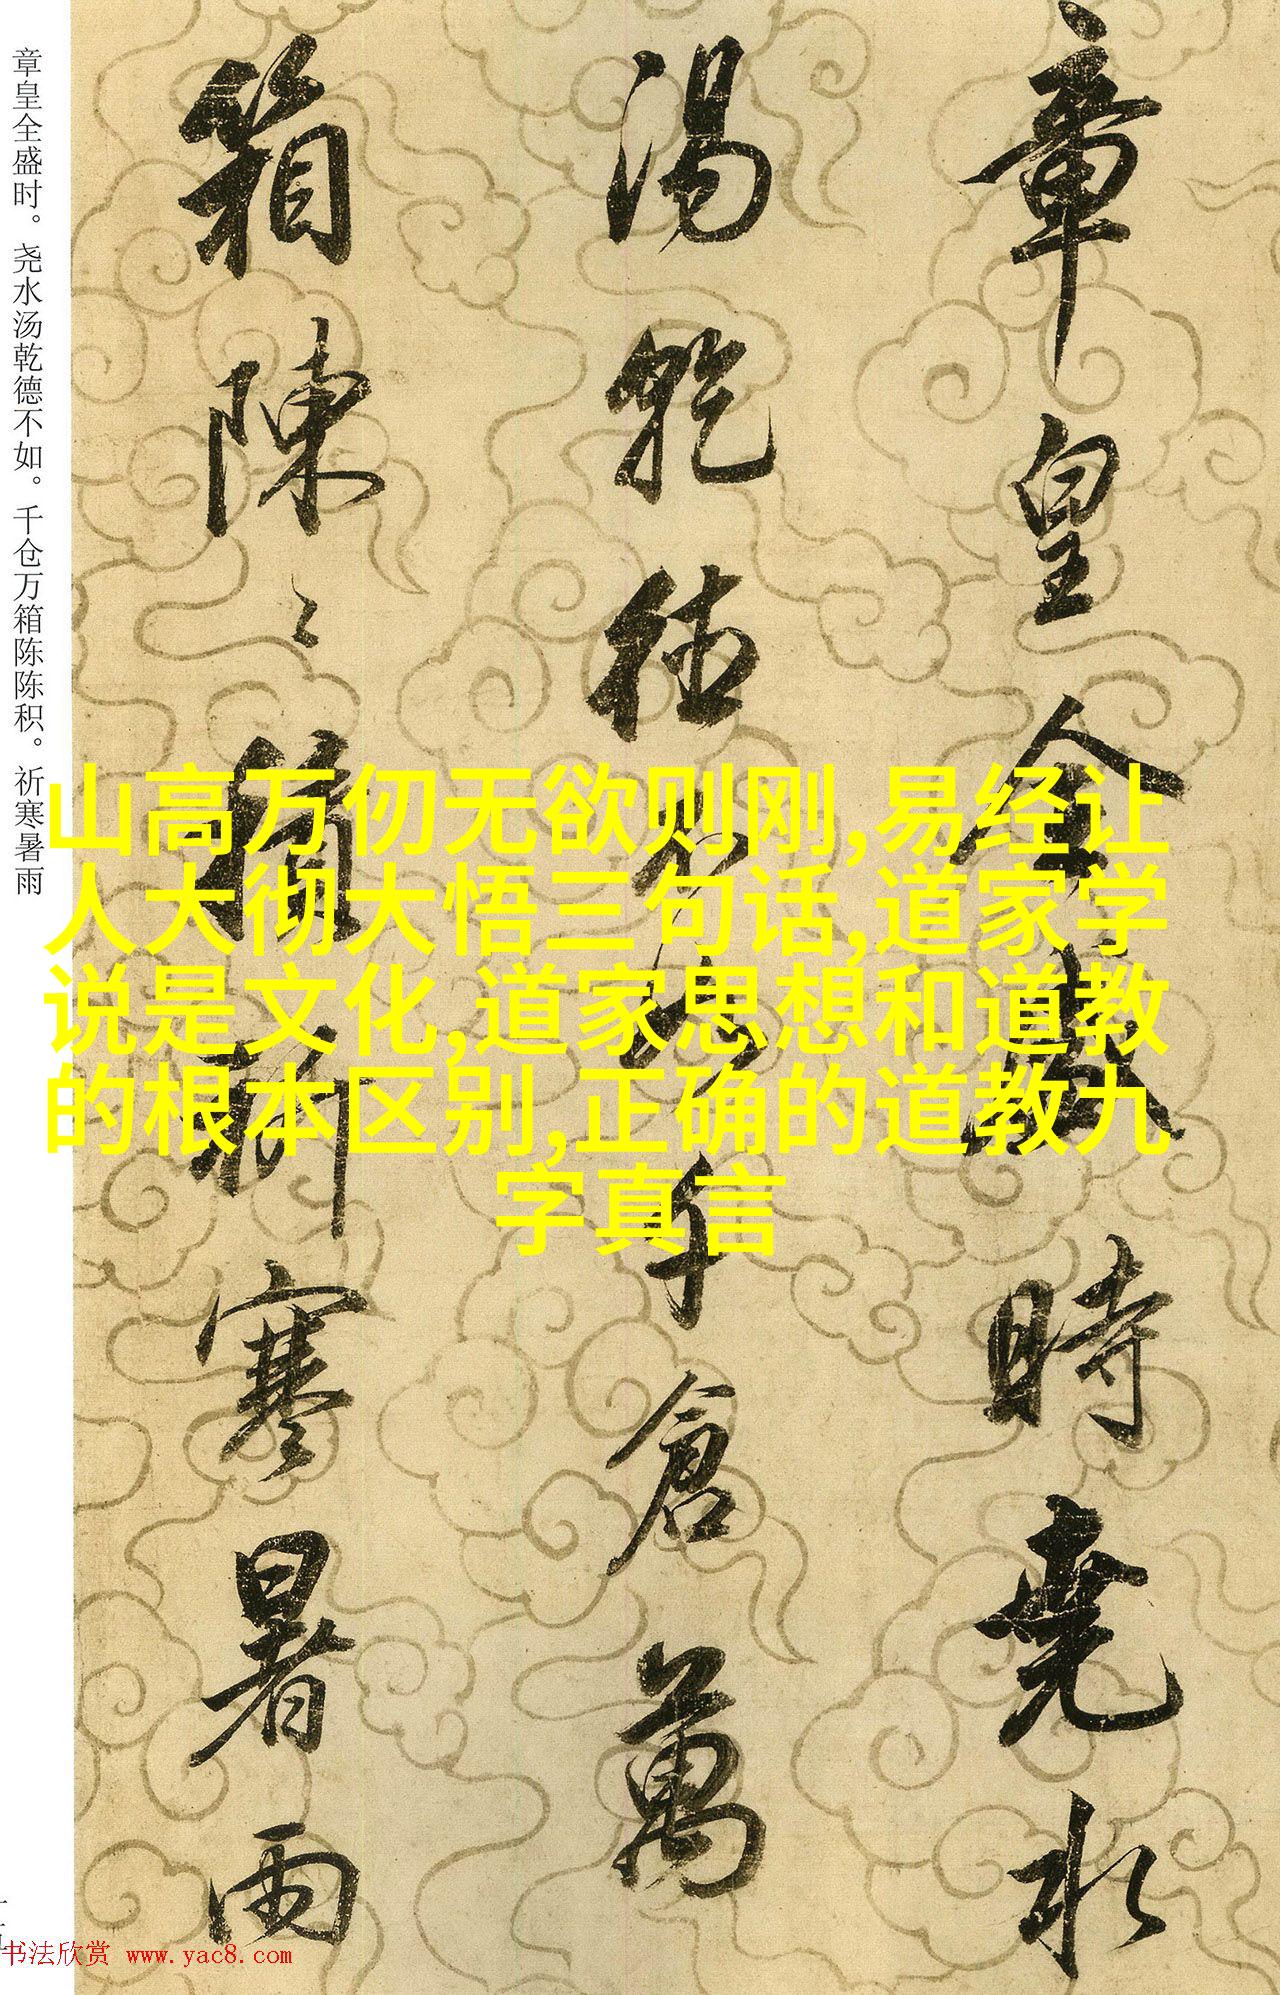 章皇全盛時堯水
湯乾德不如千倉萬
箱陳〻積祈寒暑雨
章皇全盛时。尧水汤乾德不如。千仓万箱陈陈积。祈寒暑雨
山高万仞无欲则刚,易经让
人大彻大悟三句话,道家学
说是文化,道家思想和道教
的根本区别,正确的道教九
字真言
书法欣赏 www.yac8.com